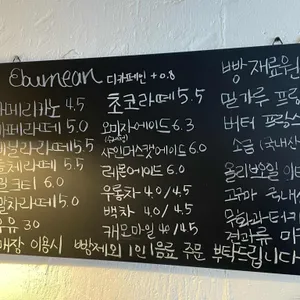 Ebumean 디카페인 +0.8
아메리카노 4.5
카페라떼 5.0
바닐라라떼 5.5
돌체라떼 5.5
밀크티 6.0
말차라떼 5.0
우유 3.0
초코라떼 5.5
오미자에이드 6.3
샤인머스캣에이드 6.0
레몬에이드 6.0
우롱차 4.0/4.5
백차 4.0/4.5
캐모마일 4.0/4.5
빵 재료원
밀가루 프랑
버터 프랑스
소금 (국내산
올리브오일 이태
고구마 국내산
무화과-터키
견과류 미국
매장 이용시 빵제외 1인 1음료 주문 부탁드립니다